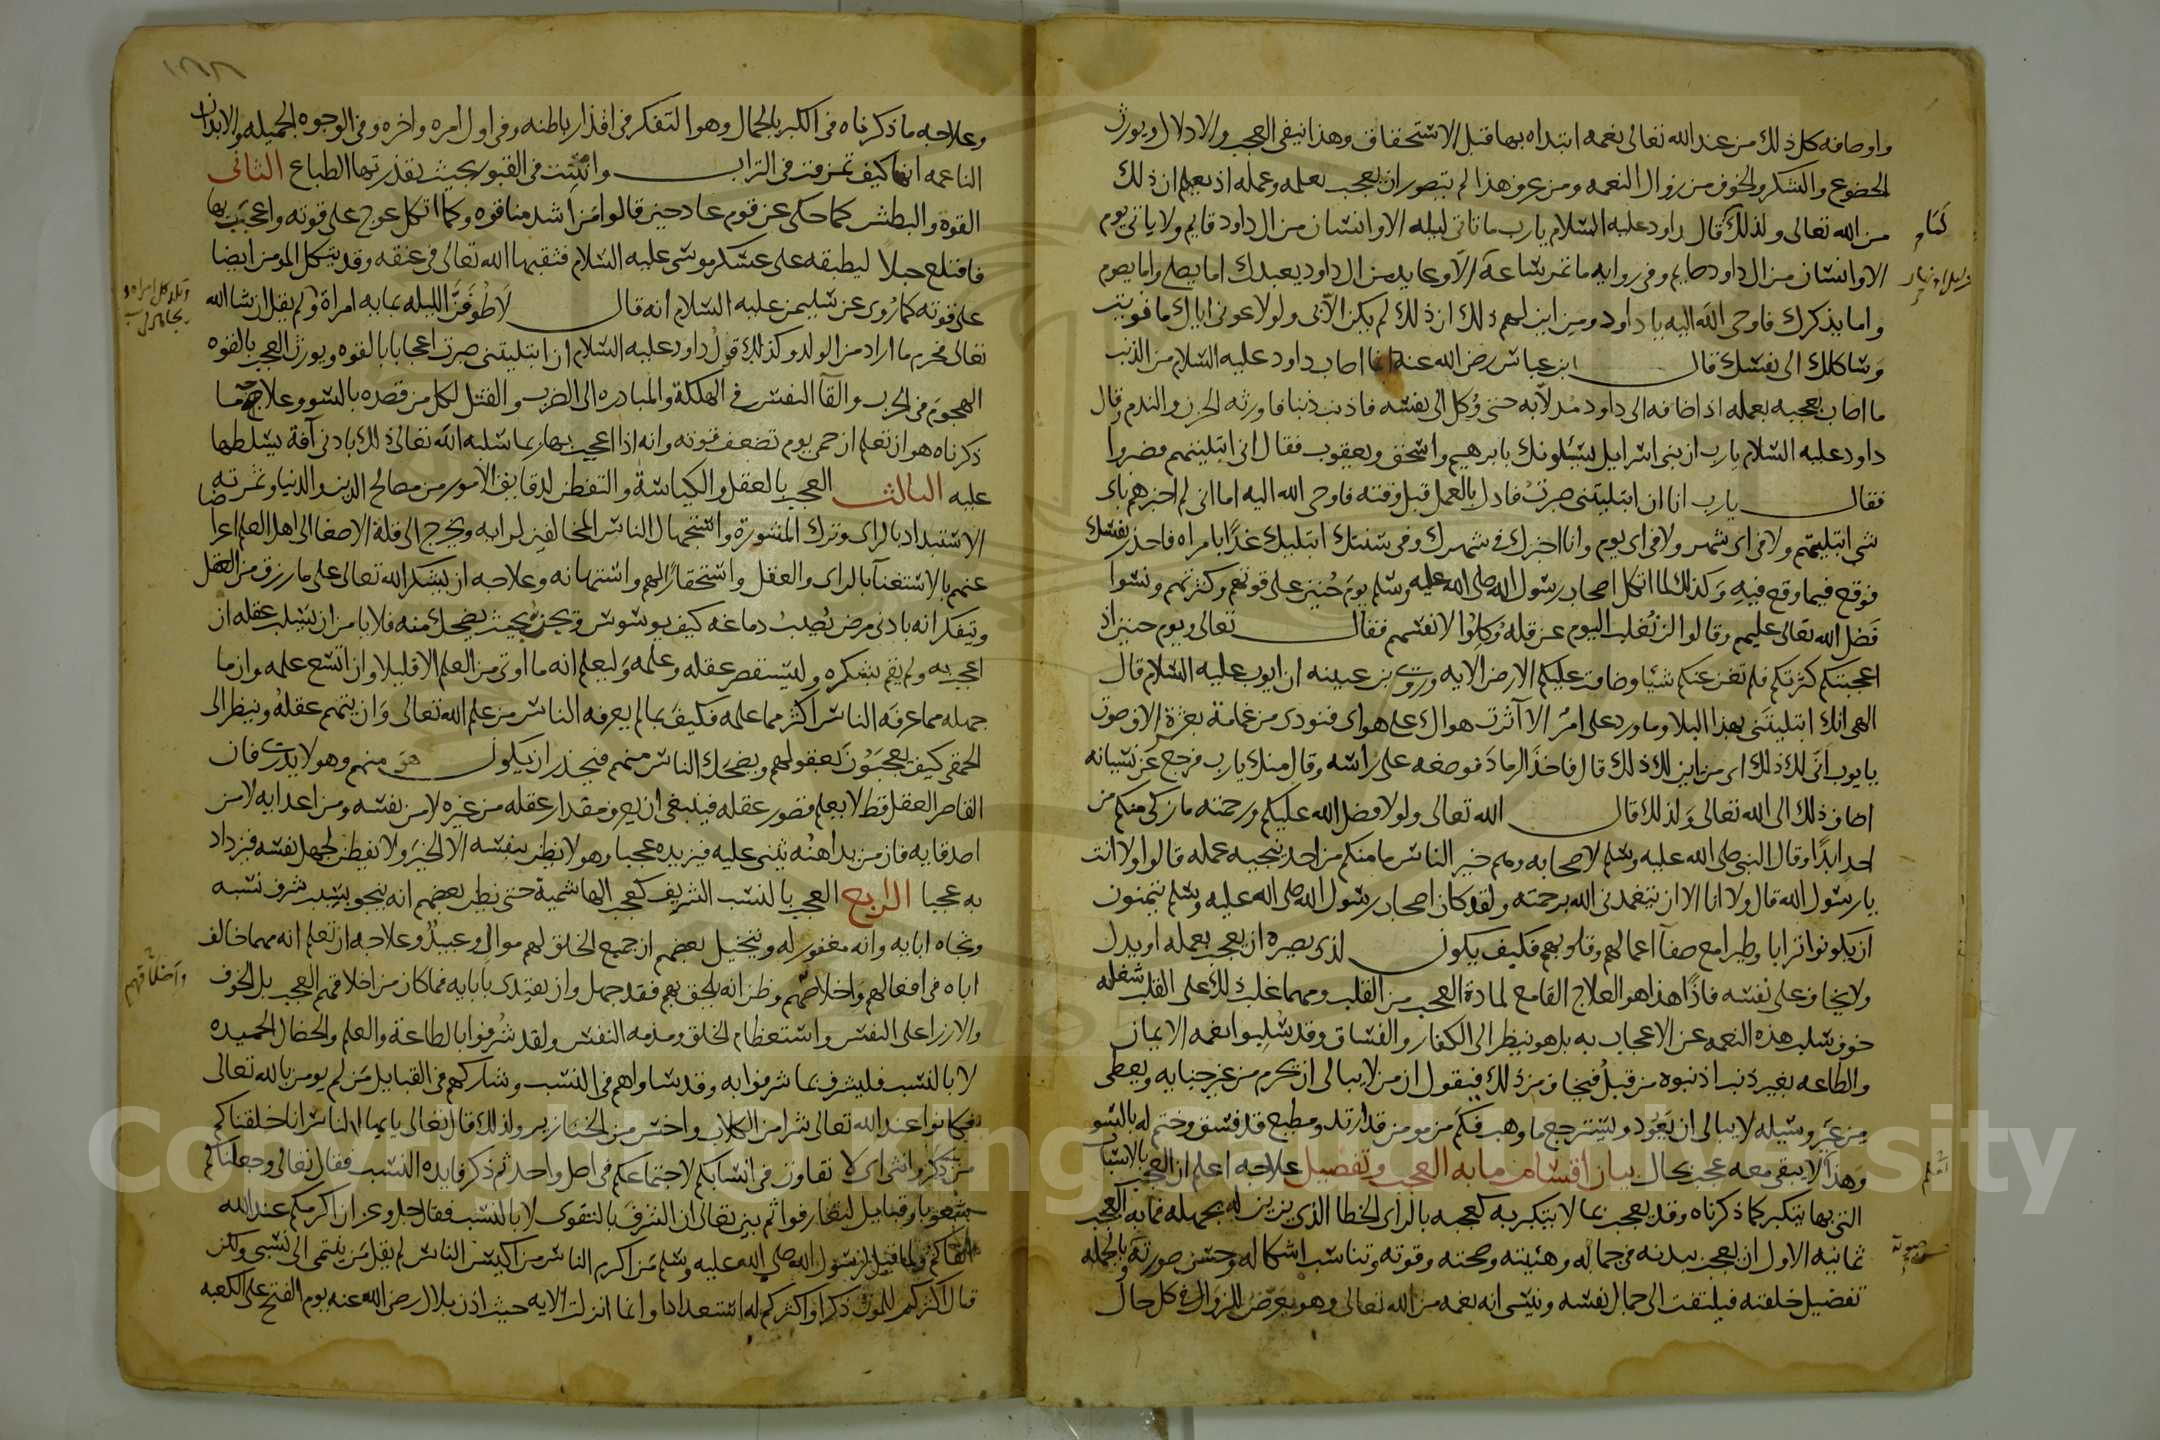 واوصافه كل ذلك من عند الله تعالى نعمه ابتداه بها قبل الاستحقاق وهذا ينفى العجب والادلال ويورث
الخضوع والشكر والخوف من زوال النعمه ومن عرف هذا لم يتصور ان يعجب بعلمه وعمله اذ يعلم ان ذلك
من الله تعالى ولذلك قال داود عليه السلام يارب ما تاتى ليله الا وانسان من ال داود قايم ولا ياتى يوم
الا وانسان من ال داود صايم وفى روايه ما تمر ساعة الا وعابد من ال داود يعبدك اما يصلى واما يصوم
واما يذكرك فاوحى الله اليه يا داود ومن اين لهم ذلك ان ذلك لم يكن الا بى ولولا عونى اياك ما قويت
وساكلك الى نفسك قال ابن عباس رضى الله عنه انما اصاب داود عليه السلام من الذنب
ما اصاب بعجبه بعمله اذ اضافه الى داود مدلا به حتى وكل الى نفسه فاذنب ذنبا فاورثه الحزن والندم وقال
داود عليه السلام يارب ان بنى اسرايل يسئلونك بابرهيم واسحق ويعقوب فقال انى ابتليتهم فصبروا
فقال يارب انا ان ابتليتنى صبرت فادل بالعمل قبل وقته فاوحى الله اليه اما انى لم اخبرهم باى
شى ابتليتهم ولا فى اى شهر ولا فى اى يوم وانا اخبرك فى شهرك وفى سنتك ابتليك غدا بامراه فاحذر نفسك
فوقع فيما وقع فيه وكذلك لما اتكل اصحاب رسول الله صلى الله عليه وسلم يوم حنين على قوتهم وكثرتهم ونسوا
فضل الله تعالى عليهم وقالوا لن نغلب اليوم عن قله وكلوا الى انفسهم فقال تعالى ويوم حنين اذ
اعجبتكم كثرتكم فلم تغن عنكم شيا وضاقت عليكم الارض الايه وروى بن عيينه ان ايوب عليه السلام قال
الهى انك ابتليتنى بهذا البلا وما ورد على امر الا آثرت هواك على هواى فنودى من غمامة بعشرة الاف صوت
يا يوب انى لك ذلك اى من اين لك ذلك قال فاخذ الرماد فوضعه على راسه وقال منك يارب فرجع عن نسيانه
اضاف ذلك الى الله تعالى ولذلك قال الله تعالى ولولا فضل الله عليكم ورحمته ما زكى منكم من
احد ابدا وقال النبى صلى الله عليه وسلم لاصحابه وهم خير الناس ما منكم من احد ينجيه عمله قالوا ولا انت
يا رسول الله قال ولا انا الا ان يتغمدنى الله برحمته ولقد كان اصحاب رسول الله صلى الله عليه وسلم يتمنون
ان يكونوا ترابا وطيرا مع صفآ اعمالهم وقلوبهم فكيف يكون لذى بصيره ان يعجب بعمله او يدل
ولا يخاف على نفسه فاذا هذا هو العلاج القامع لمادة العجب من القلب ومهما غلب ذلك على القلب شغله
خوف سلب هذه النعمه عن الاعجاب به بل هو ينظر الى الكفار والفساق وقد سلبوا نعمه الايمان
والطاعه بغير ذنب اذنبوه من قبل فيخاف من ذلك فيقول ان من لا يبالى ان يحرم من غير جنايه ويعطى
من غير وسيله لا يبالى ان يعود ويسترجع ما وهب فكم من مومن قد ارتد ومطيع قد فسق وختم له بالسو
وهذا لا يبقى معه عجب بحال بيان اقسام ما به العجب وتفصيل علاجه اعلم ان العجب بالاسباب
التى بها يتكبر كما ذكرناه وقد يعجب بما لا يتكبر به كعجبه بالراى الخطا الذى يزين له بجهله فما به العجب
ثمانيه الاول ان يعجب ببدنه فى جماله وهيئته وصحته وقوته وتناسب اشكاله وحسن صورته وبالجمله
تفضيل خلقته فيلتفت الى جمال نفسه وينسى انه نعمه من الله تعالى وهو بعرض الزوال فى كل حال
وعلاجه ما ذكرناه فى الكبر بالجمال وهو التفكر فى اقذار باطنه وفى اول امره واخره وفى الوجوه الجميله والابدان
الناعمه انها كيف تمزقت فى التراب وانتنت فى القبور بحيث تقذرتها الطباع الثانى
القوة والبطش كما حكى عن قوم عاد حين قالوا من اشد منا قوه وكما اتكل عوج على قوته واعجب بها
فاقتلع جبلا ليطبقه على عسكر موسى عليه السلام فثقبها الله تعالى فى عنقه وقد يتكل المومن ايضا
على قوته كما روى عن سليمن عليه السلام انه قال لاطوفن الليله بمايه امراة ولم يقل ان شا الله
تعالى فحرم ما اراد من الولد وكذلك قول داود عليه السلام ان ابتليتنى صبرت اعجابا بالقوه ويورث العجب بالقوه
الهجوم فى الحرب والقآ النفس فى الهلكة والمبادره الى الضرب والقتل لكل من قصده بالسو وعلاجه ما
ذكرناه هو ان تعلم ان حمى يوم تضعف قوته وانه اذا اعجب بها ربما سلبه الله تعالى ذلك بادنى آفة يسلطها
عليه الثالث العجب بالعقل والكياسة والتفطن لدقايق الامور من مصالح الدين والدنيا وثمرته
الاستبداد بالراى وترك المشورة واستجهال الناس المخالفين لرايه ويخرج الى قلة الاصغا الى اهل العلم اعراضا
عنهم بالاستغنآ بالراى والعقل واستحقارا لهم واستهانه وعلاجه ان يشكر الله تعالى على ما رزق من العقل
ويتفكر انه بادنى مرض يصيب دماغه كيف يوسوس ويجن بحيث يضحك منه فلا يامن ان يسلب عقله ان
اعجب به ولم يقم بشكره وليستقصر عقله وعلمه وليعلم انه ما اوتى من العلم الا قليلا وان اتسع علمه وان ما
جمله مما عرفه الناس اكثر مما علمه فكيف بما لم يعرفه الناس من علم الله تعالى وان يتهم عقله وينظر الى
الحمقى كيف يعجبون بعقولهم ويضحك الناس منهم فيحذر ان يكون هو منهم وهو لا يدرى فان
القاصر العقل قط لا يعلم قصور عقله فينبغى ان يعرف مقدار عقله من غيره لا من نفسه ومن اعدايه لا من
اصدقايه فان من يداهنه يثنى عليه فيزيده عجبا وهو لا يظن بنفسه الا الخير ولا يفطن لجهل نفسه فيزداد
به عجبا الرابع العجب بالنسب الشريف كعجب الهاشمية حتى يظن بعضهم انه ينجو بسبب شرف نسبه
ونجاه ابايه وانه مغفور له ويتخيل بعضهم ان جميع الخلق لهم موال وعبيد وعلاجه ان تعلم انه مهما خالف
اباه فى افعالهم واخلاقهم وظن انه يلحق بهم فقد جهل وان يقتدى بابايه فما كان من اخلاقهم العجب بل الخوف
والازرا على النفس واستعظام الخلق ومذمه النفس ولقد شرفوا بالطاعة والعلم والخصال الحميده
لا بالنسب فليشرف بما شرفوا به وقد ساواهم فى النسب وشاركهم فى القبايل من لم يومن بالله تعالى
فكانوا عند الله تعالى شرا من الكلاب واخس من الخنازير ولذلك قال تعالى يايها الناس انا خلقناكم
من ذكر وانثى اى لا تفاوت فى انسابكم لاجتماعكم فى اصل واحد ثم ذكر فايده النسب فقال تعالى وجعلناكم
شعوبا وقبايل لتعارفوا ثم بين تعالى ان الشرف بالتقوى لا بالنسب فقال جل وعز ان اكرمكم عند الله
اتقاكم ولما قيل لرسول الله صلى الله عليه وسلم من اكرم الناس من اكيس الناس لم يقل من ينتمى الى نسبى ولكن
قال اكثركم للموت ذكرا واكثركم له استعدادا وانما انزلت الايه حيث اذن بلال رضى الله عنه يوم الفتح على الكعبه
واخلاقهم
Copyright © King Saud University